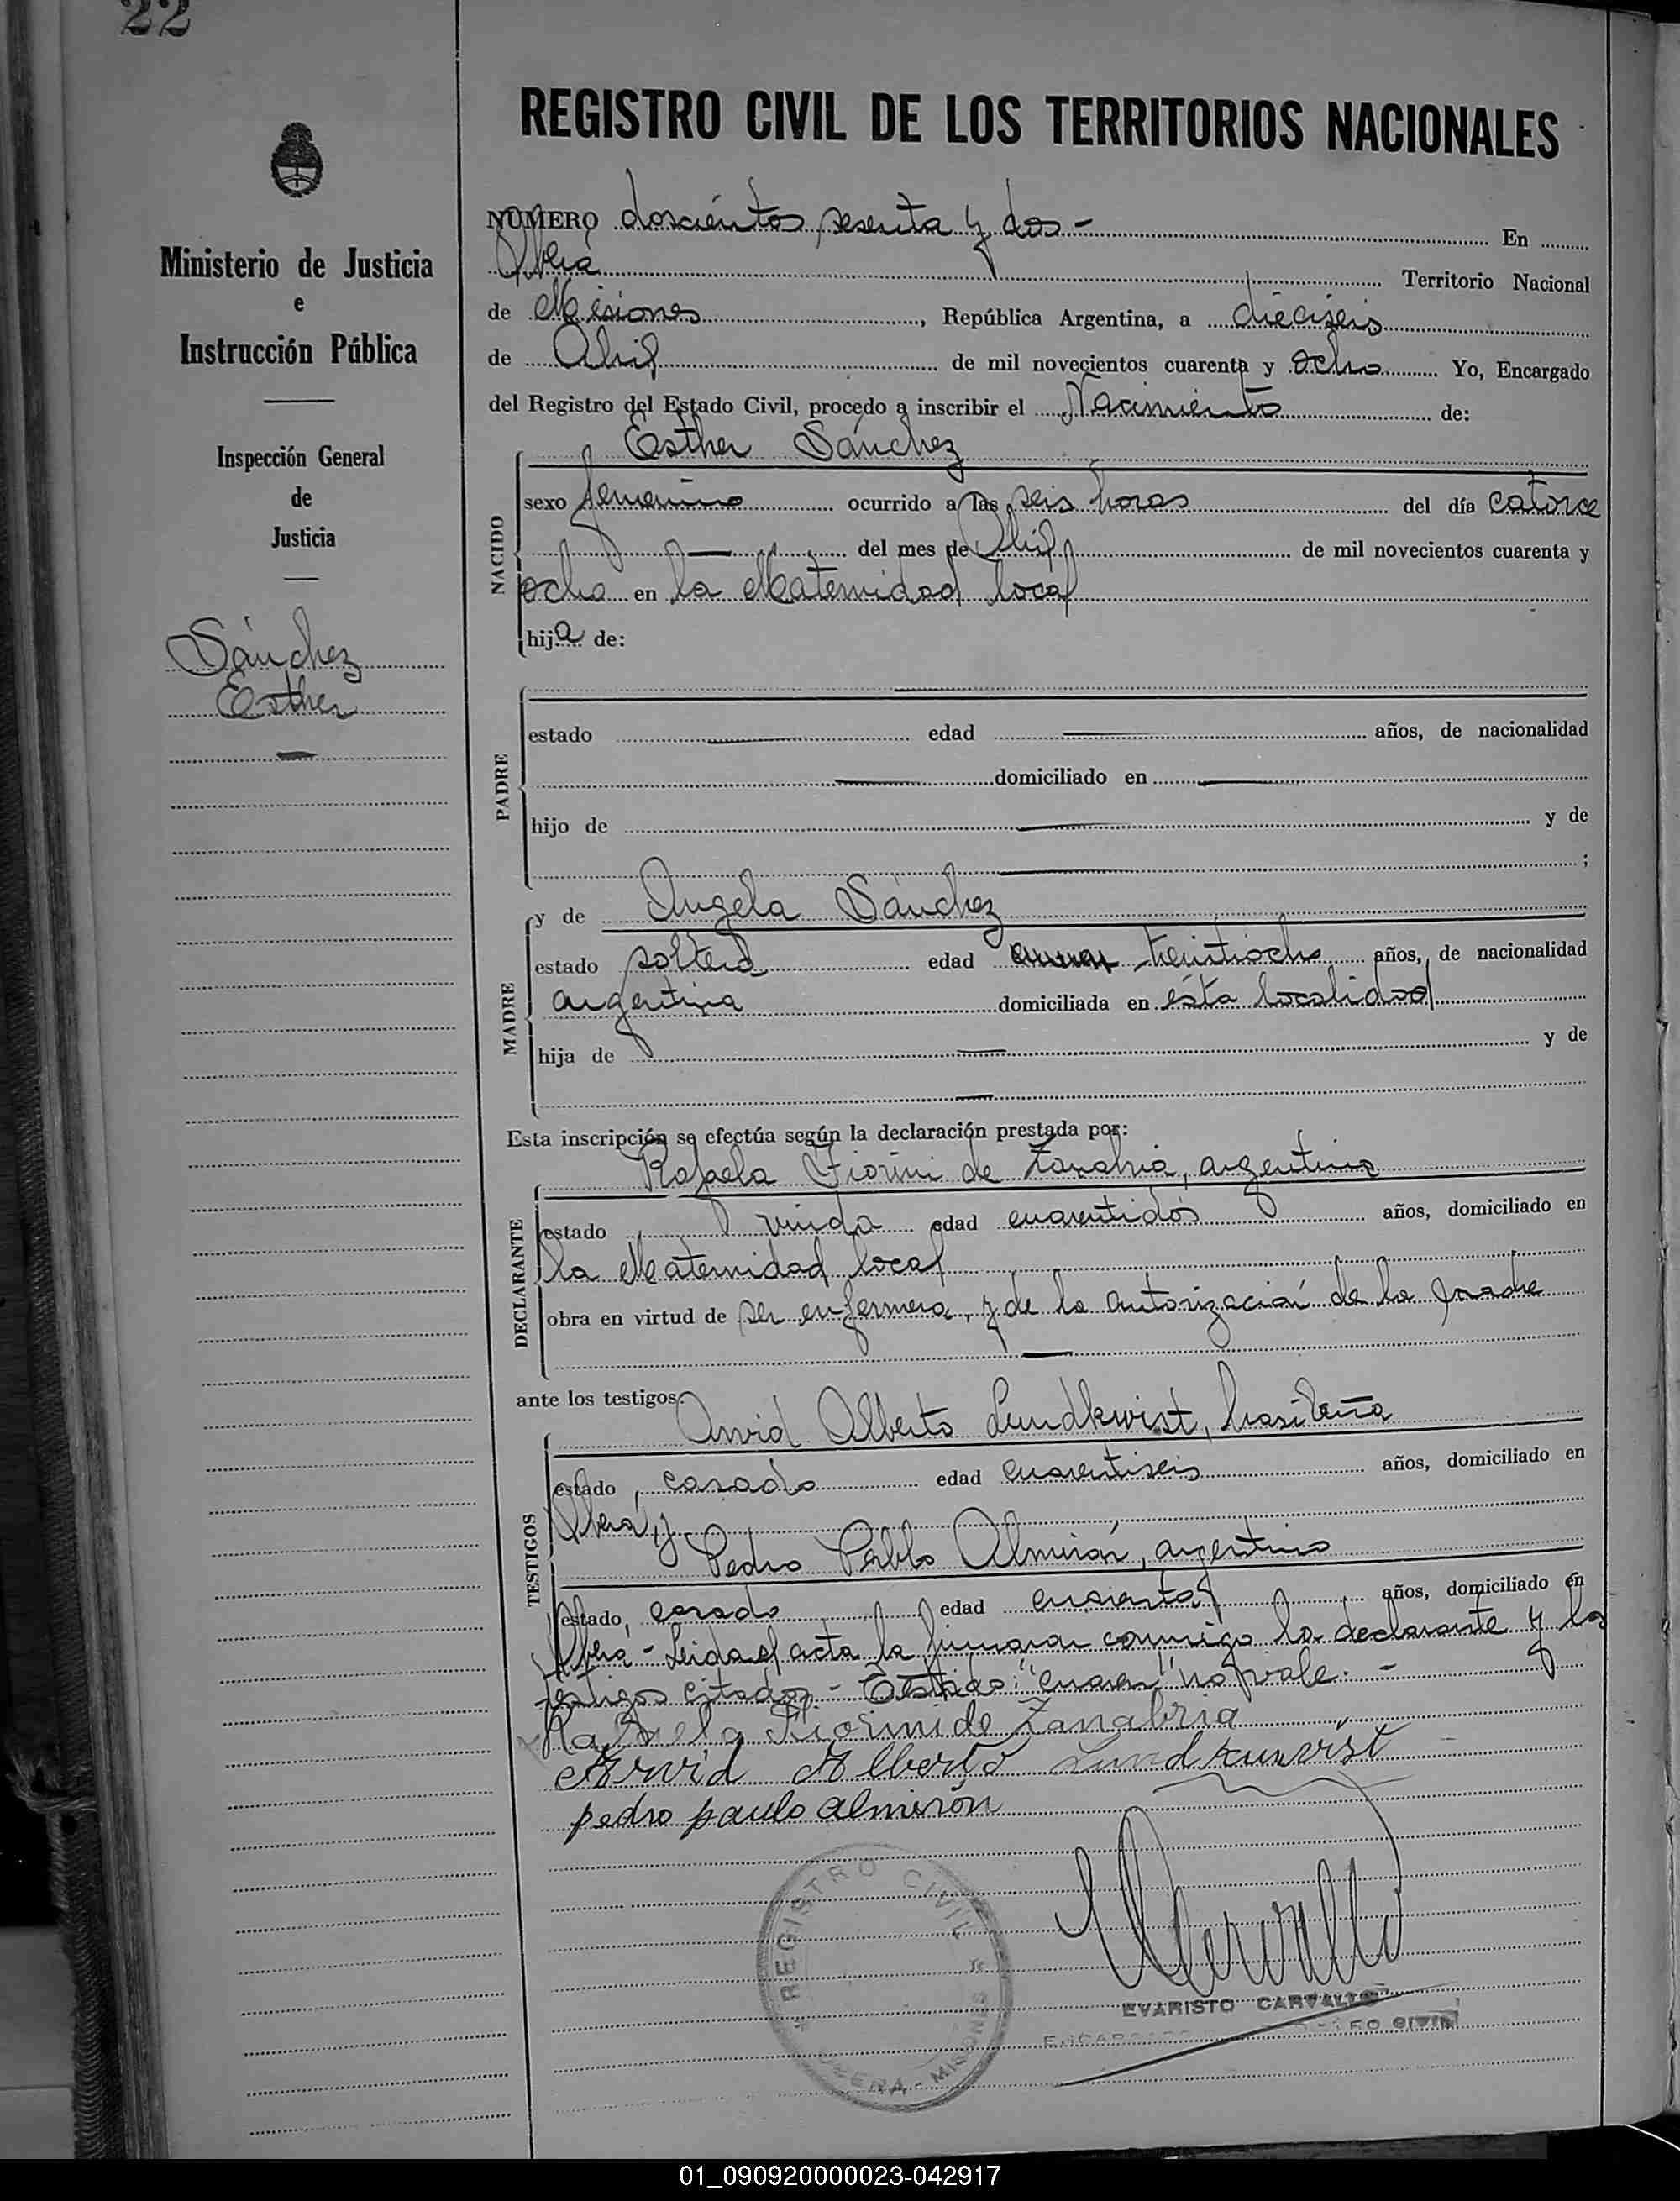 22
REGISTRO CIVIL DE LOS TERRITORIOS NACIONALES
Ministerio de Justicia
e
Instrucción Pública
Inspección General
de
Justicia
Sánchez
Esther
NÚMERO doscientos sesenta y dos - En
Oberá Territorio Nacional
de Misiones, República Argentina, a dieciseis
de Abril de mil novecientos cuarenta y ocho Yo, Encargado
del Registro del Estado Civil, procedo a inscribir el Nacimiento de:
NACIDO
Esther Sánchez
sexo femenino ocurrido a las seis horas del día catorce
— del mes de Abril de mil novecientos cuarenta y
ocho en la Maternidad local
hija de:
PADRE
estado — edad — años, de nacionalidad
— domiciliado en —
hijo de — y de
— ;
MADRE
y de Angela Sánchez
estado soltera edad treintiocho años, de nacionalidad
argentina domiciliada en ésta localidad
hija de — y de
—
Esta inscripción se efectúa según la declaración prestada por:
DECLARANTE
Rafaela Fiorini de Zanabria, argentina
estado viuda edad cuarentidós años, domiciliado en
la Maternidad local
obra en virtud de ser enfermera, y de la autorización de la madre
—
ante los testigos:
TESTIGOS
Arvid Alberto Lundkwist, brasileña
estado casado edad cuarentiseis años, domiciliado en
Oberá, y
Pedro Pablo Almirón, argentino
estado casado edad cuarenta años, domiciliado en
Oberá - Leida el acta la firmaran conmigo la declarante y los
testigos citados. - Testado: "cuaren" no vale. -
Rafaela Fiorini de Zanabria
Arvid Alberto Lundkuwist
pedro paulo almirón
REGISTRO CIVIL
OBERA - MISIONES
EVARISTO CARVALLO
ENCARGADO REGISTRO CIVIL
01_090920000023-042917